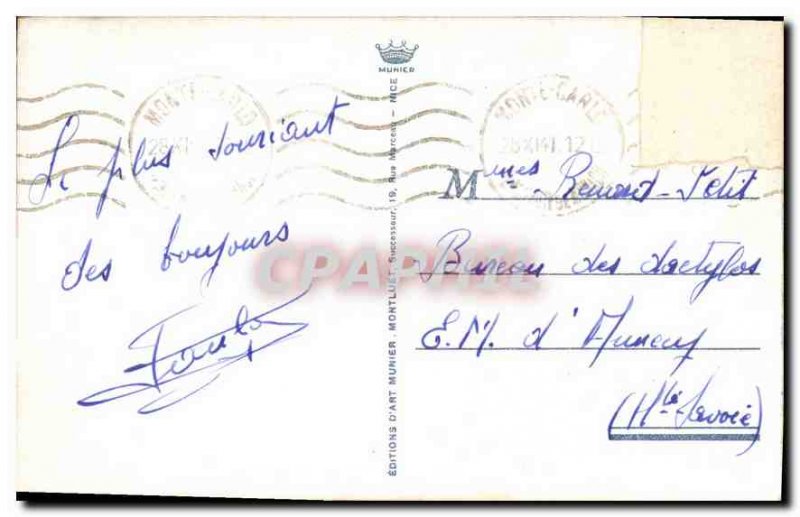 Le plus souriant
des toujours
MUNIER
MONTE-CARLO
28 XI 41
MONTE-CARLO
28 XI 41. 12
EDITIONS D'ART MUNIER, MONTLUET, Successeur, 19, Rue Marceau - NICE
CPAPHIL
Mmes Remont-Petit
Bureau des dactylos
E.M. d'Annecy
(Hte Savoie)